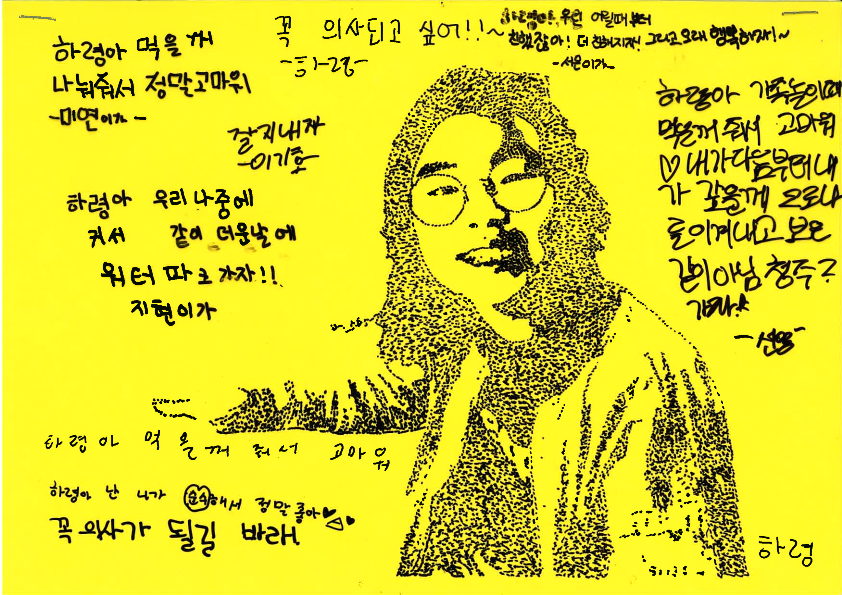 꼭 의사되고 싶어!!~
-하령-
하령아 우린 어릴때부터
친했잖아! 더 친해지자! 그리고 오래 행복하자!~
-서은이가-
하령아 먹을꺼
나눠줘서 정말고마워
-미연이가-
잘지내자
-이기호-
하령아 우리 나중에
커서 같이 더운날에
워터 파크 가자!!
지현이가
하령아 가족놀이때
먹을꺼 줘서 고마워
♡내가다음부터내
가 갚을께 으로나
로이겨내고 보은
같이아님 청주?
가자!
하령아 먹을꺼 줘서 고마워
하령아 난 니가 순수해서 정말 좋아♥
꼭 의사가 될길 바래!
하령